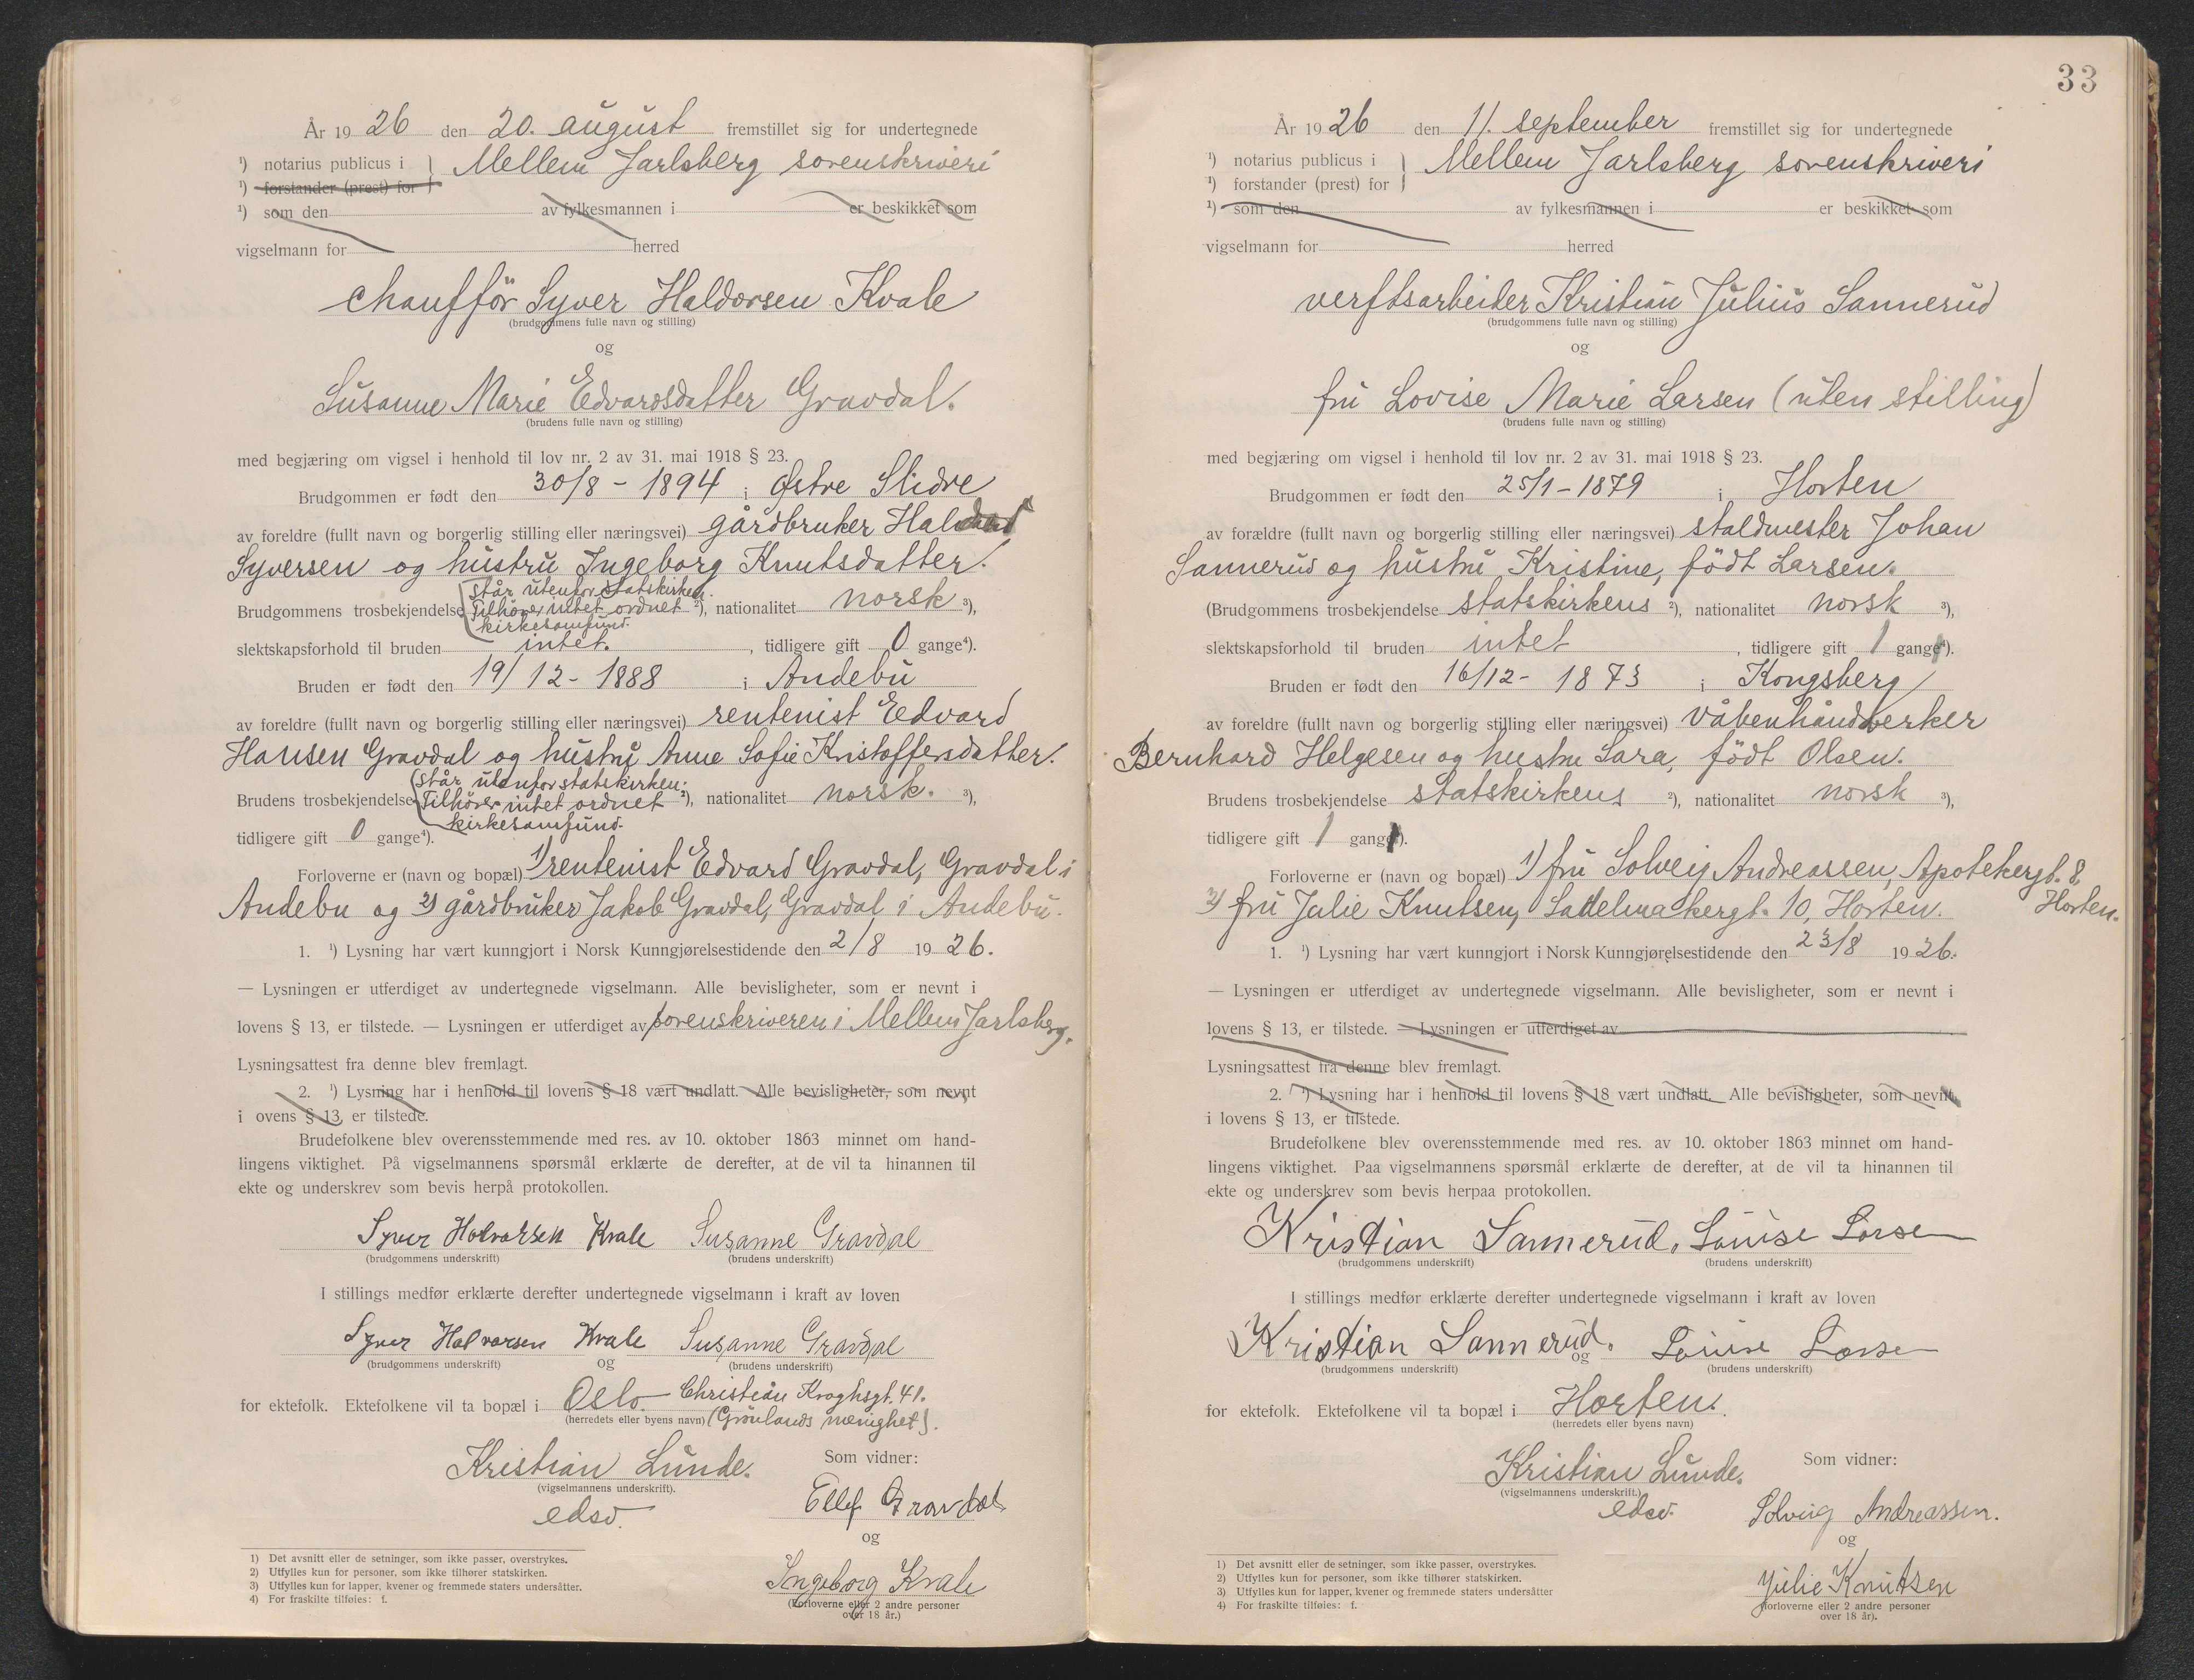 År 1926 den 20. august fremstillet sig for undertegnede
¹) notarius publicus i } Mellem Jarlsberg sorenskriveri
¹) forstander (prest) for
¹) som den av fylkesmannen i er beskikket som
vigselmann for herred
chaufför Syver Haldorsen Kvale
(brudgommens fulle navn og stilling)
og
Susanne Marie Edvardsdatter Gravdal.
(brudens fulle navn og stilling)
med begjæring om vigsel i henhold til lov nr. 2 av 31. mai 1918 § 23.
Brudgommen er født den 30/8 - 1894 i Østre Slidre
av foreldre (fullt navn og borgerlig stilling eller næringsvei) gårdbruker
Syversen og hustru Ingeborg Knutsdatter.
står utenfor statskirken.
Brudgommens trosbekjendelse Tilhører intet ordnet ²), nationalitet norsk ³),
kirkesamfund.
slektskapsforhold til bruden intet. , tidligere gift 0 gange⁴).
Bruden er født den 19/12 - 1888 i Andebu
av foreldre (fullt navn og borgerlig stilling eller næringsvei) rentenist Edvard
Hansen Gravdal og hustru Anne Sofie Kristoffersdatter.
står utenfor statskirken.
Brudens trosbekjendelse Tilhører intet ordnet ²), nationalitet norsk. ³),
kirkesamfund.
tidligere gift 0 gange⁴).
Forloverne er (navn og bopæl) 1) rentenist Edvard Gravdal, Gravdal i
Andebu og 2) gårdbruker Jakob Gravdal, Gravdal i Andebu.
1. ¹) Lysning har vært kunngjort i Norsk Kunngjørelsestidende den 2/8 1926.
— Lysningen er utferdiget av undertegnede vigselmann. Alle bevisligheter, som er nevnt i
lovens § 13, er tilstede. — Lysningen er utferdiget av sorenskriveren i Mellem Jarlsberg.
Lysningsattest fra denne blev fremlagt.
2. ¹) Lysning har i henhold til lovens § 18 vært undlatt. Alle bevisligheter, som nevnt
i ovens § 13, er tilstede.
Brudefolkene blev overensstemmende med res. av 10. oktober 1863 minnet om hand-
lingens viktighet. På vigselmannens spørsmål erklærte de derefter, at de vil ta hinannen til
ekte og underskrev som bevis herpå protokollen.
Syver Halvorsen Kvale Susanne Gravdal
(brudgommens underskrift) (brudens underskrift)
I stillings medfør erklærte derefter undertegnede vigselmann i kraft av loven
Syver Halvorsen Kvale Susanne Gravdal
(brudgommens underskrift) og (brudens underskrift)
for ektefolk. Ektefolkene vil ta bopæl i Oslo Christian Kroghsgt. 41.
(herredets eller byens navn) (Grönlands menighet).
Kristian Lunde. Som vidner:
(vigselmannens underskrift).
edsv. Ellef Gravdal
og
Ingeborg Kvale
(Forloverne eller 2 andre personer
over 18 år.)
1) Det avsnitt eller de setninger, som ikke passer, overstrykes.
2) Utfylles kun for personer, som ikke tilhører statskirken.
3) Utfylles kun for lapper, kvener og fremmede staters undersåtter.
4) For fraskilte tilføies: f.
33
År 1926 den 11. september fremstillet sig for undertegnede
¹) notarius publicus i } Mellem Jarlsberg sorenskriveri
¹) forstander (prest) for
¹) som den av fylkesmannen i er beskikket som
vigselmann for herred
verftsarbeider Kristian Julius Sannerud
(brudgommens fulle navn og stilling)
og
fru Lovise Marie Larsen (uten stilling)
(brudens fulle navn og stilling)
med begjæring om vigsel i henhold til lov nr. 2 av 31. mai 1918 § 23.
Brudgommen er født den 25/1 - 1879 i Horten
av forældre (fullt navn og borgerlig stilling eller næringsvei) staldmester Johan
Sannerud og hustru Kristine, født Larsen.
(Brudgommens trosbekjendelse statskirkens ²), nationalitet norsk ³),
slektskapsforhold til bruden intet , tidligere gift 1 gang⁴).
Bruden er født den 16/12 - 1873 i Kongsberg
av foreldre (fullt navn og borgerlig stilling eller næringsvei) våbenhåndverker
Bernhard Helgesen og hustru Sara, födt Olsen.
Brudens trosbekjendelse statskirkens ²), nationalitet norsk ³),
tidligere gift 1 gang⁴).
Forloverne er (navn og bopæl) 1) fru Solveig Andreassen, Apotekergt. 8,
Horten.
2) fru Julie Knutsen, Sadelmakergt. 10, Horten.
1. ¹) Lysning har vært kunngjort i Norsk Kunngjørelsestidende den 23/8 1926.
— Lysningen er utferdiget av undertegnede vigselmann. Alle bevisligheter, som er nevnt i
lovens § 13, er tilstede. — Lysningen er utferdiget av
Lysningsattest fra denne blev fremlagt.
2. ¹) Lysning har i henhold til lovens § 18 vært undlatt. Alle bevisligheter, som nevnt
i lovens § 13, er tilstede.
Brudefolkene blev overensstemmende med res. av 10. oktober 1863 minnet om hand-
lingens viktighet. Paa vigselmannens spørsmål erklærte de derefter, at de vil ta hinannen til
ekte og underskrev som bevis herpaa protokollen.
Kristian Sannerud. Lovise Larsen
(brudgommens underskrift) (brudens underskrift)
I stillings medfør erklærte derefter undertegnede vigselmann i kraft av loven
Kristian Sannerud. Lovise Larsen
(brudgommens underskrift) og (brudens underskrift)
for ektefolk. Ektefolkene vil ta bopæl i Horten.
(herredets eller byens navn)
Kristian Lunde. Som vidner:
(vigselmannens underskrift.)
edsv. Solveig Andreassen.
og
Julie Knutsen
(forloverne eller 2 andre personer
over 18 år).
1) Det avsnitt eller de setninger, som ikke passer, overstrykes.
2) Utfylles kun for personer, som ikke tilhører statskirken.
3) Utfylles kun for lapper, kvener og fremmede staters undersåtter
4) For fraskilte tilføies: f.